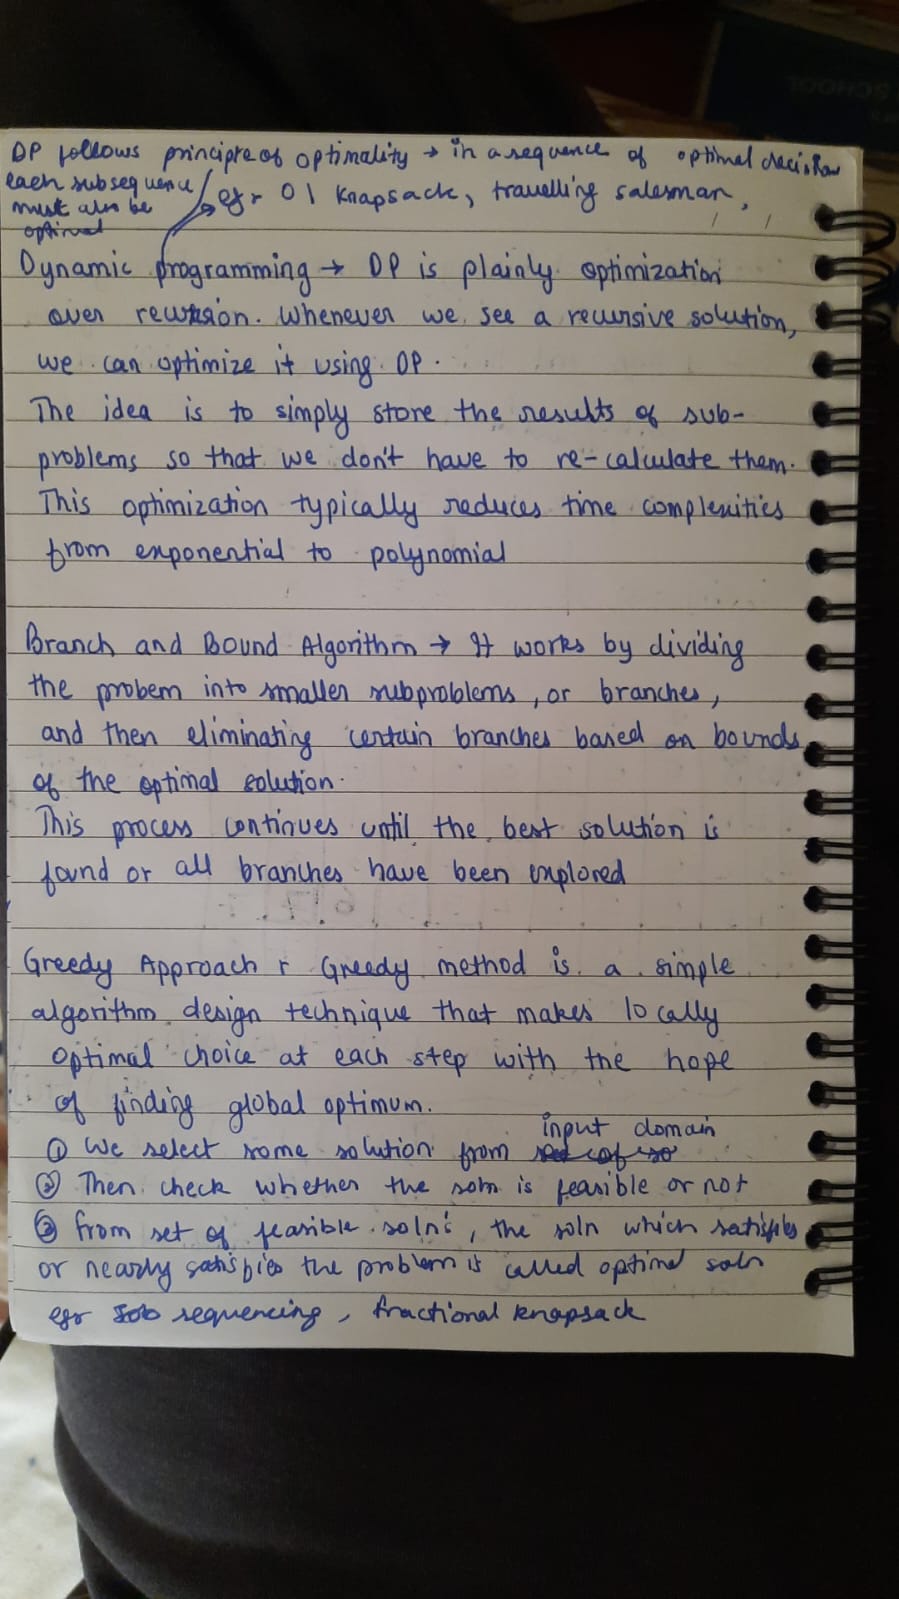 DP follows principle of optimality → in a sequence of optimal decision
each subsequence
must also be
optimal
eg:- 01 Knapsack, travelling salesman,
Dynamic programming → DP is plainly optimization
over recursion. Whenever we see a recursive solution,
we can optimize it using DP.
The idea is to simply store the results of sub-
problems so that we don't have to re-calculate them.
This optimization typically reduces time complexities
from exponential to polynomial
Branch and Bound Algorithm → It works by dividing
the probem into smaller subproblems, or branches,
and then eliminating certain branches based on bounds
of the optimal solution.
This process continues until the best solution is
found or all branches have been explored
Greedy Approach :- Greedy method is a simple
algorithm design technique that makes locally
optimal choice at each step with the hope
of finding global optimum.
① We select some solution from input domain
② Then check whether the soln is feasible or not
③ from set of feasible soln's, the soln which satisfies
or nearly satisfies the problem is called optimal soln
eg:- Job sequencing, fractional knapsack